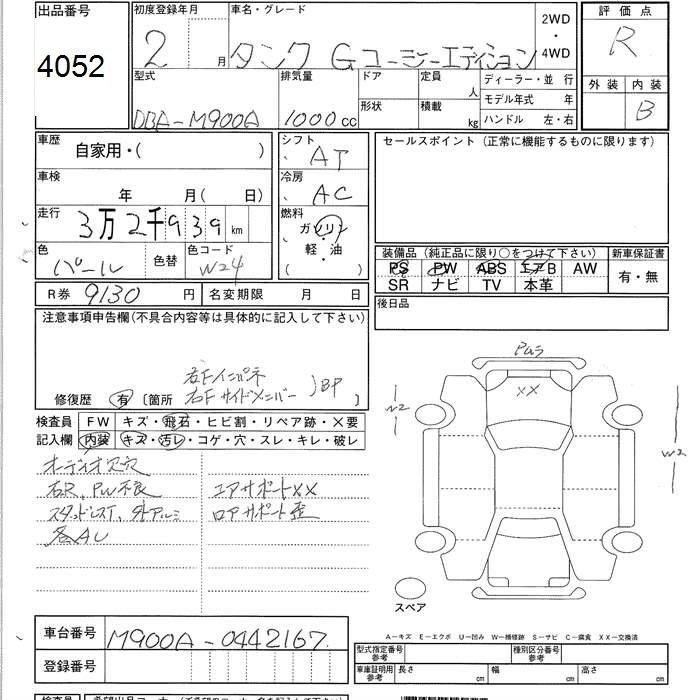 出品番号
4052
初度登録年月
2 月
車名・グレード
タンク Gコージーエディション
2WD
・
4WD
評価点
R
外装
内装
B
型式
DBA-M900A
排気量
1000cc
ドア
形状
定員
人
積載
kg
ディーラー・並 行
モデル年式 年
ハンドル 左・右
車歴
自家用・( )
車検
年 月( 日)
走行
3万2千939 km
色
パール
色替
色コード
W24
シフト
AT
冷房
AC
燃料
ガソリン
・
軽・油
( )
R券 9130 円
名変期限 月 日
セールスポイント (正常に機能するものに限ります)
装備品 (純正品に限り○をつけて下さい)
PS PW ABS エアB AW
SR ナビ TV 本革
新車保証書
有・無
後日品
注意事項申告欄(不具合内容等は具体的に記入して下さい)
修復歴 有 〔箇所
右Fインパネ
右Fサイドメンバー
検査員
記入欄
FW キズ・飛石・ヒビ割・リペア跡・×要
内装 キズ・汚レ・コゲ・穴・スレ・キレ・破レ
オーディオ穴
右R、PW不良
スタッドレスT、外アルミ
各AU
エアサポート××
ロアサポート歪
PWラ
××
W2
W2
スペア
A-キズ E-エクボ U-凹み W-補修跡 S-サビ C-腐食 XX-交換済
車台番号
M900A-0442167
登録番号
型式指定番号
参考
種別区分番号
参考
車庫証明用
参考
長さ cm
幅 cm
高さ cm